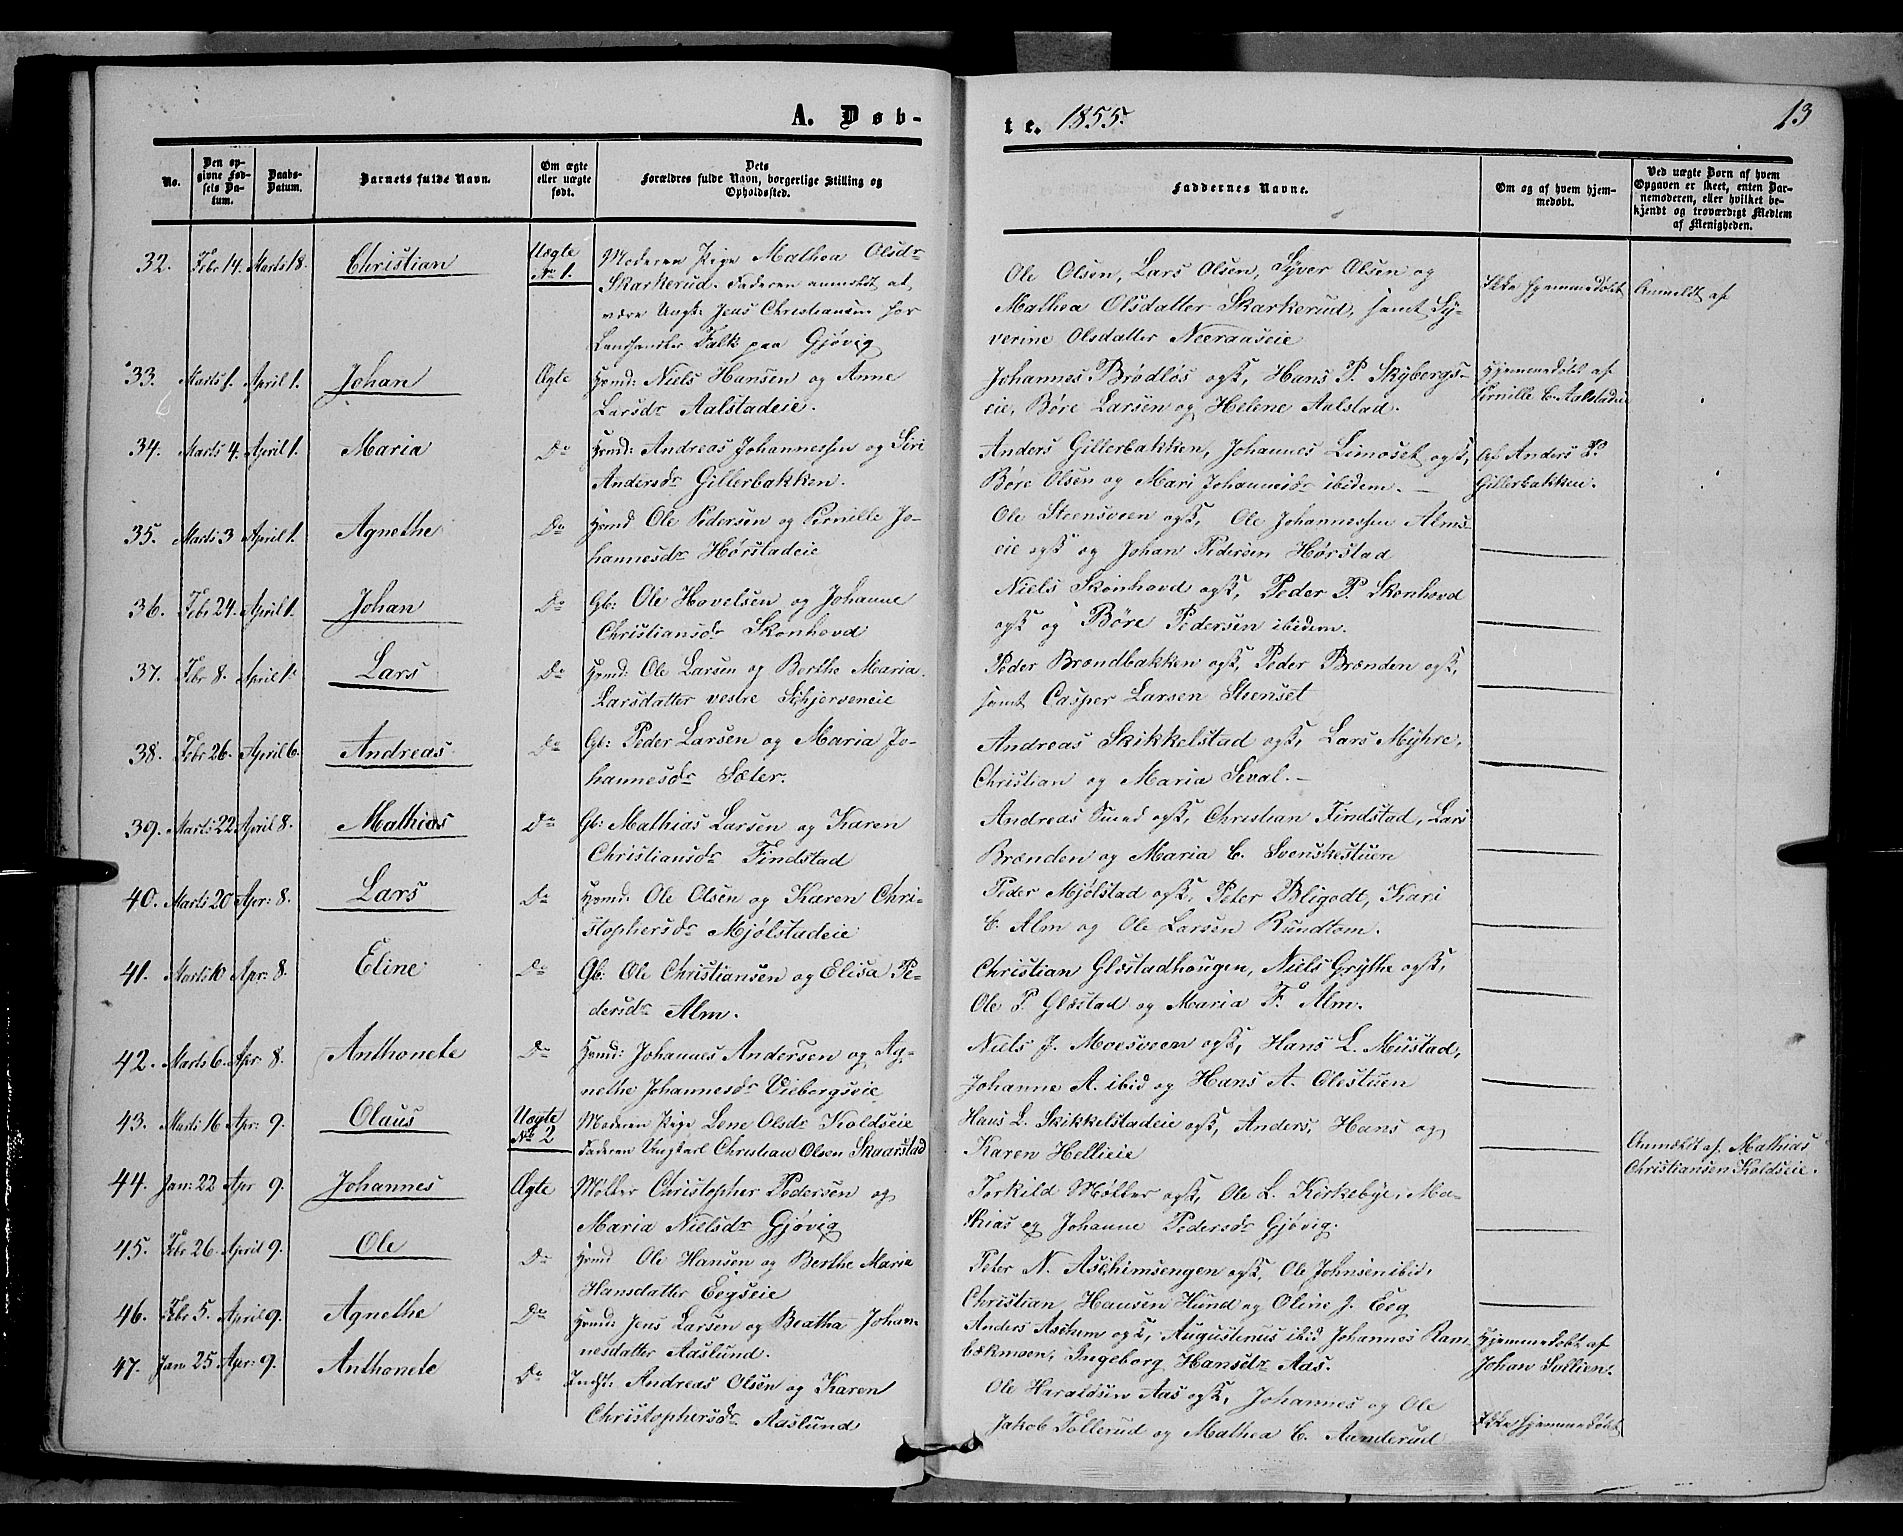 A. Døb-
te. 1855.
13
No.
Den op-
givne Fød-
sels Da-
tum.
Daabs-
Datum.
Barnets fulde Navn.
Om ægte
eller uægte
født.
Dets
Forældres fulde Navn, borgerlige Stilling og
Opholdssted.
Faddernes Navne.
Om og af hvem hjem-
medøbt.
Ved uægte Børn af hvem
Opgaven er skeet, enten Bar-
nemoderen, eller hvilket be-
kjendt og troværdigt Medlem
af Menigheden.
32. Febr 14. Marts 18. Christian
Uægte
No 1.
Moderen Pige Mathea Olsdr
Skarkerud. Faderen anmeldt at
være Ungk: Jens Christiansen hos
Landhandler Falk paa Gjøvig
Ole Olsen, Lars Olsen, Syver Olsen og
Mathea Olsdatter Skarkerud, samt Sy-
verine Olsdatter Neeraaseie
Ikke hjemmedøbt
Anmeldt af
33. Marts 1. April 1. Johan
6
Ægte
Hmd: Niels Hansen og Anne
Larsdr Aalstadeie.
Johannes Brødløs ogk, Hans P. Skybergs-
eie, Børe Larsen og Helene Aalstad.
Hjemmedøbt af
Pernille C. Aalstadeie
34. Marts 4. April 1. Maria
Do
Hmd: Andreas Johannessen og Siri
Andersdr Gillerbakken.
Anders Gillerbakken, Johannes Limoset ogk,
Børe Olsen og Mari Johannisdr ibidem. —
Af Anders P.
Gillerbakken.
35. Marts 3 April 1. Agnethe
Do
Hmd Ole Pedersen og Pernille Jo-
hannesdr Hørstadeie
Ole Steensveen ogk, Ole Johannessen Alms-
eie ogk og Johan Pedersen Hørstad
36. Febr 24. April 1. Johan
Do
Gb: Ole Hovelsen og Johanne
Christiansdr Skonhovd
Niels Skonhovd ogk, Peder P. Skonhovd
ogk og Børe Pedersen ibidem.
37. Febr 8. April 1. Lars
Do
Hmd: Ole Larsen og Berthe Maria
Larsdatter vestre Schjerveneie
Peder Brondbakken ogk, Peder Brænden ogk,
samt Casper Larsen Steenset
38. Febr 26. April 6. Andreas
Do
Gb: Peder Larsen og Maria Jo-
hannesdr Sæter.
Andreas Skikkelstad ogk, Lars Myhre,
Christian og Maria Seval. —
39. Marts 22 April 8. Mathias
Do
Gb: Mathias Larsen og Karen
Christiansdr Findstad
Andreas Smed ogk, Christian Findstad, Lars
Brænden og Maria C. Svenskestuen
40. Marts 20 Apr: 8. Lars
Do
Hmd: Ole Olsen og Karen Chri-
stophersdr Mjølstadeie
Peder Mjølstad ogk, Peter Bligodt, Kari
C. Alm og Ole Larsen Rundtom.
41. Marts 10 Apr: 8. Eline
Do
Gb: Ole Christiansen og Elisa Pe-
dersdr Alm.
Christian Glæstadhougen, Niels Grythe ogk,
Ole P. Glæstad og Maria F. Alm.
42. Marts 6. Apr: 8. Anthonete
Do
Hmd: Johannes Andersen og Ag-
nethe Johannesdr Viebergseie
Niels J. Moesveen ogk, Hans L. Meustad,
Johanne A. ibid og Hans A. Olestuen
43. Marts 16 Apr: 9. Olaus
Uægte
No 2
Moderen Pige Lene Olsdr Koldseie
Faderen Ungkarl Christian Olsen Skaarstad
Hans L. Skikkelstadeie ogk, Anders, Hans og
Karen Hellieie
Anmeldt af Mathias
Christiansen Koldseie.
44. Jan: 22 Apr 9. Johannes
Ægte
Møller Christopher Pedersen og
Maria Nielsdr Gjøvig
Torkild Møller ogk, Ole L. Kirkebye, Ma-
thias og Johanne Pedersdr Gjøvig.
45. Febr 26. April 9. Ole
Do
Hmd Ole Hansen og Berthe Marie
Hansdatter Eegseie
Peter N. Aschimsengen ogk, Ole Johnsen ibid,
Christian Hansen Hund og Oline J. Eeg
46. Febr 5. April 9. Agnethe
Do
Hmd: Jens Larsen og Beatha Johan-
nesdatter Aaslund.
Anders Aschim ogk, Augustinus ibid Johannes Ram-
bækmoen, Ingeborg Hansdr Aas.
Hjemmedøbt af
Johan Sollien.
47. Jan 25 Apr: 9. Anthonete
Do
Indst: Andreas Olsen og Karen
Christophersdr Aaslund
Ole Haraldsen Aas ogk, Johannes og Ole
Jakob Tollerud og Mathea C. Aanderud
Ikke hjemmedøbt